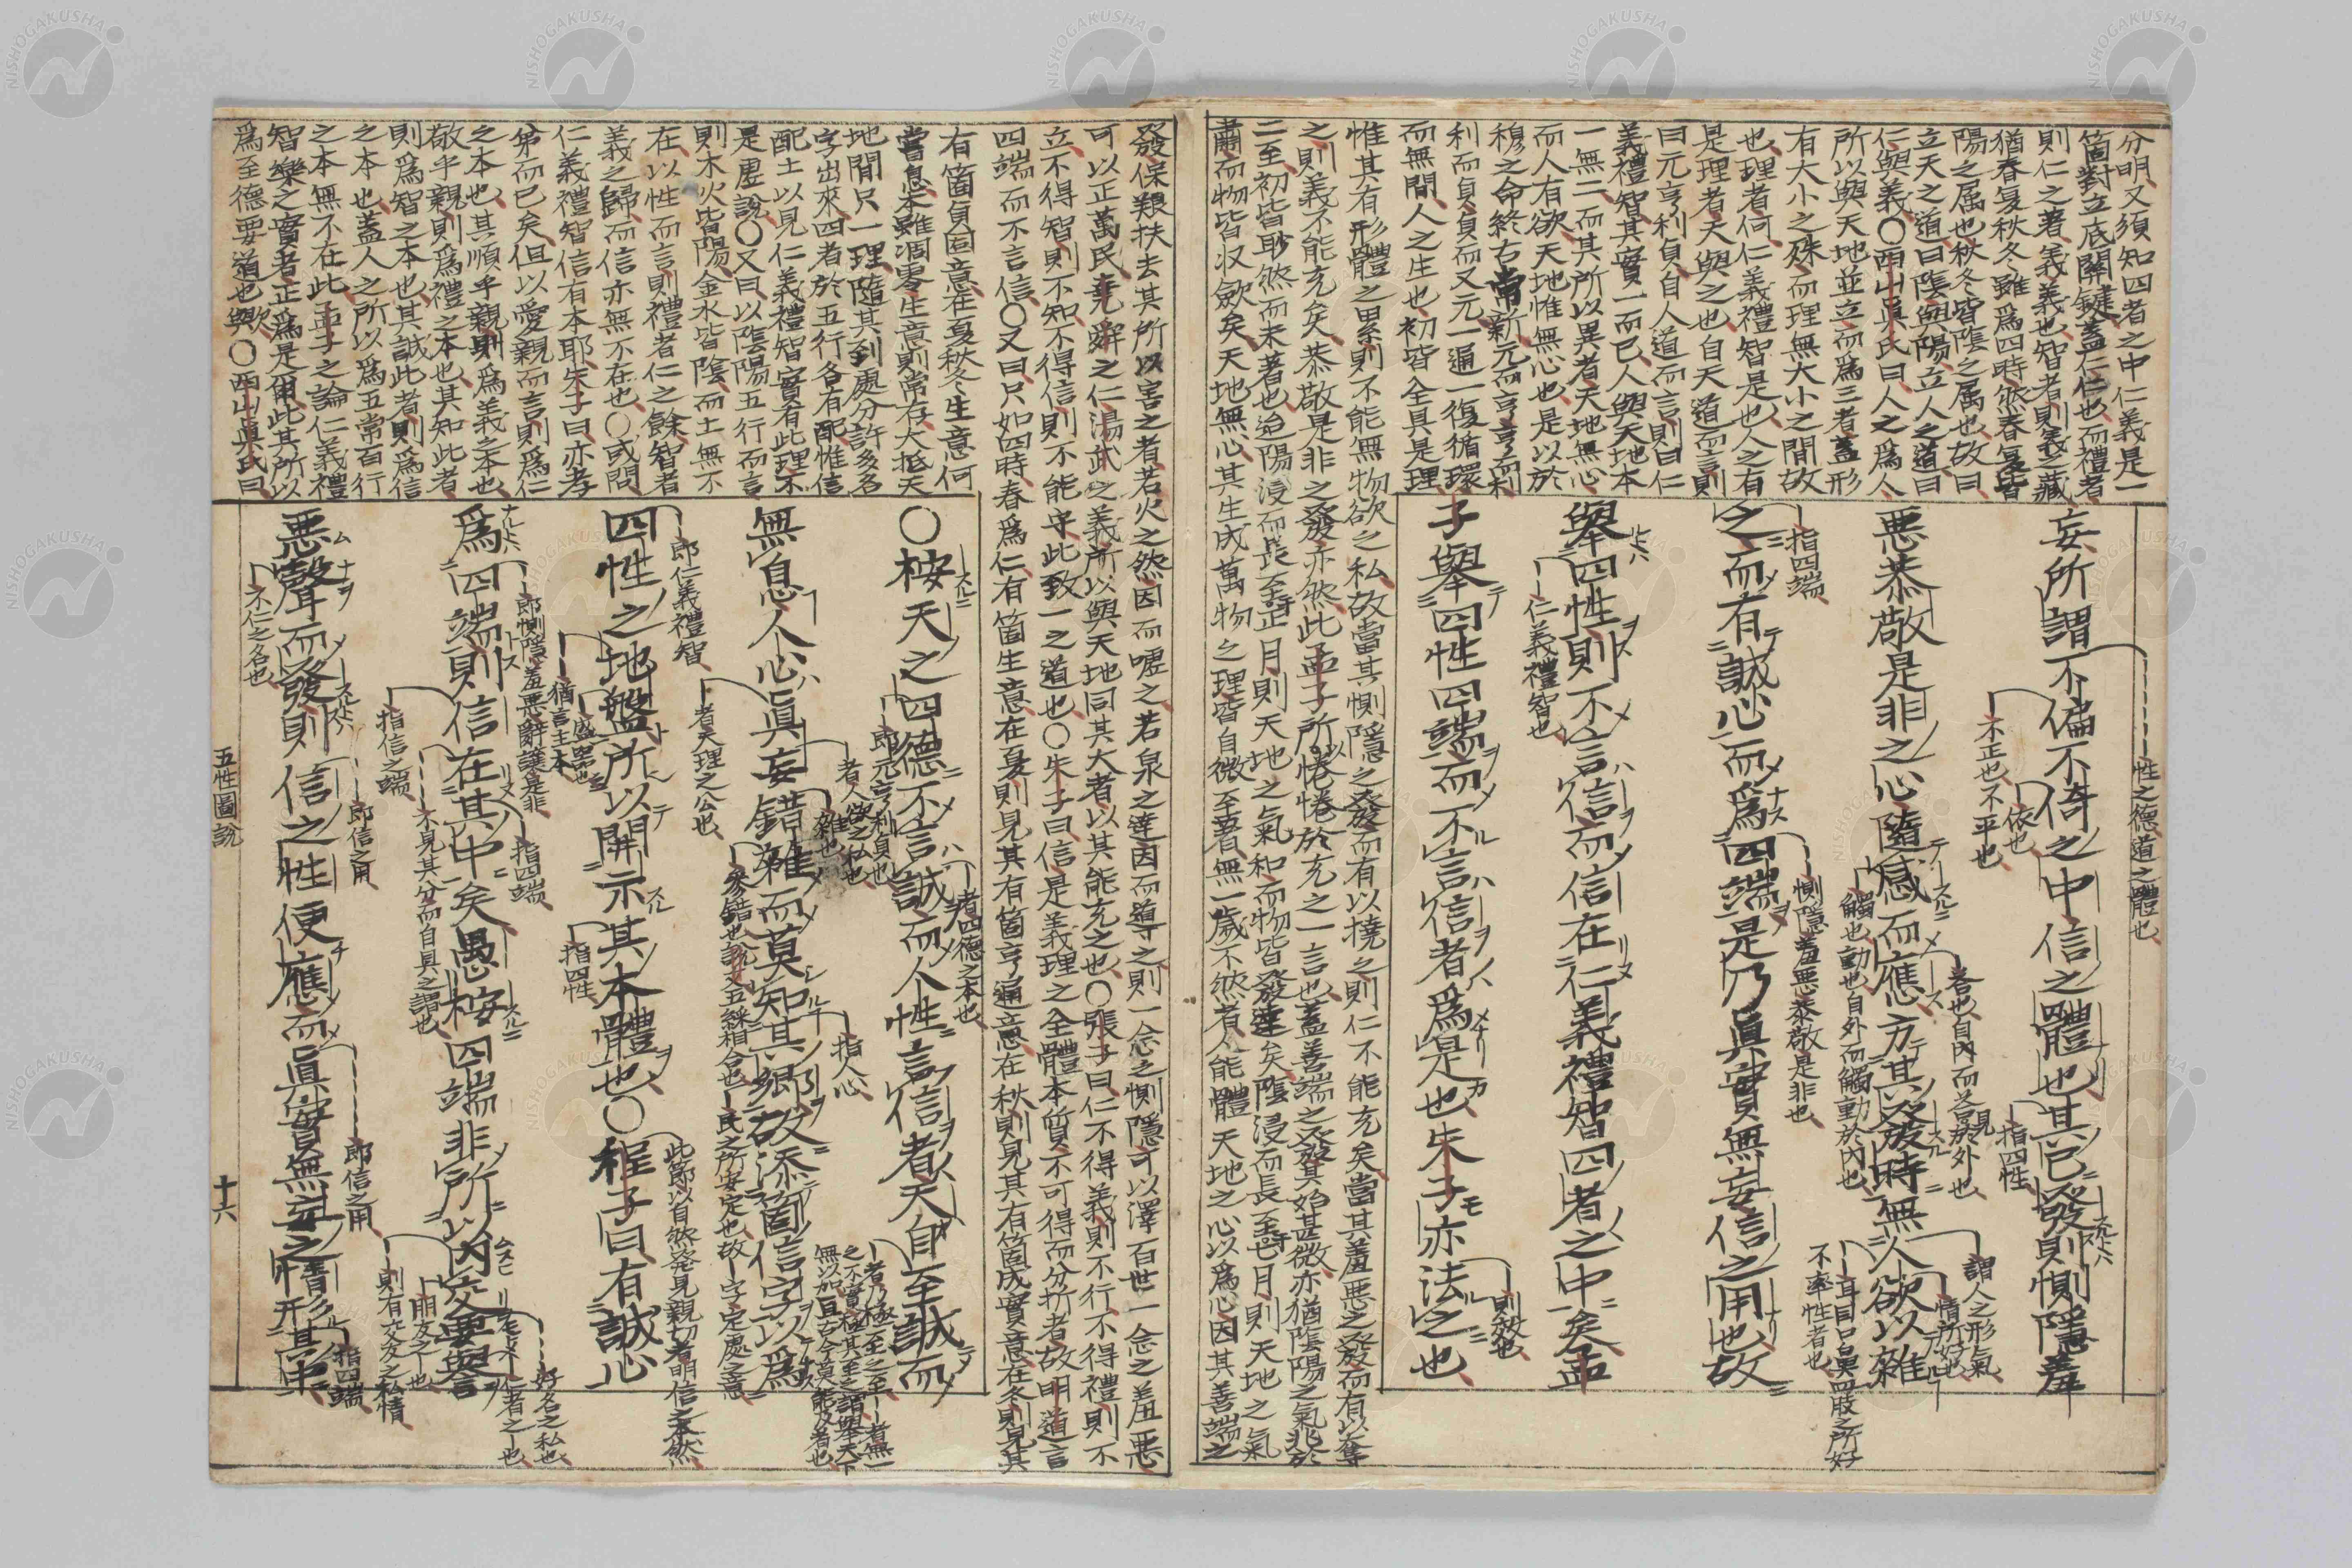 分明又須知四者之中仁義是一
箇對立底關鍵蓋仁仁也而禮者
則仁之著義義也智者則義之藏
猶春夏秋冬雖爲四時然春夏皆
陽之属也秋冬皆陰之属也故曰
立天之道曰陰與陽立人之道曰
仁與義〇西山眞氏曰人之爲人
所以與天地並立而爲三者蓋形
有大小之殊而理無大小之間故
也理者何仁義禮智是也人之有
是理者天與之也自天道而言則
曰元亨利貞自人道而言則曰仁
義禮智其實一而已人與天地本
一無二而其所以異者天地無心
而人有欲天地惟無心也是以於
穆之命終古常新元而亨亨而利
利而貞貞而又元一通一復循環
而無間人之生也初皆全具是理
惟其有形體之累則不能無物欲之私故當其惻隱之發而有以撓之則仁不能充矣當其羞惡之發而有以奪
之則義不能充矣恭敬是非之發亦然此孟子所以惓惓於充之一言也蓋善端之發其始甚微亦猶陰陽之氣兆於
二至初皆眇然而未著也迨陽浸而長至正月則天地之氣和而物皆發達矣陰浸而長至七月則天地之氣
肅而物皆収斂矣天地無心其生成萬物之理皆自微至著無一歲不然者人能體天地之心以爲心因其善端之
性之德道之體也
妄所謂不偏不倚之中信之體也其已發則惻隱羞
不正也不平也
依也
指四性
惡恭敬是非之心隨感而應方其發時無人欲以雜
觸也動也自外而觸動於内也
荅也自内而荅見於外也
謂人之形氣
情所好也
耳目口鼻四肢之所好
不率性者也
之而有誠心而爲四端是乃眞實無妄信之用也故
指四端
惻隱羞惡恭敬是非也
舉四性則不言信而信在仁義禮智四者之中矣孟
仁義禮智也
子舉四性四端而不言信者爲是也朱子亦法之也
則效也
發保艱扶去其所以害之者若火之然因而噓之若泉之達因而導之則一念之惻隱可以澤百世一念之羞惡
可以正萬民堯舜之仁湯武之義所以與天地同其大者以其能充之也〇張子曰仁不得義則不行不得禮則不
立不得智則不知不得信則不能守此致一之道也〇朱子曰信是義理之全體本質不可得而分析者故明道言
四端而不言信〇又曰只如四時春爲仁有箇生意在夏則見其有箇亨通意在秋則見其有箇成實意在冬則見其
有箇貞固意在夏秋冬生意何
嘗息本雖凋零生意則常存大抵天
地間只一理隨其到處分許多名
字出來四者於五行各有配惟信
配土以見仁義禮智實有此理不
是虚說〇又曰以陰陽五行而言
則木火皆陽金水皆陰而土無不
在以性而言則禮者仁之餘智者
義之歸而信亦無不在也〇或問
仁義禮智信有本耶朱子曰亦孝
弟而已矣但以愛親而言則爲仁
之本也其順乎親則爲義之本也
敬乎親則爲禮之本也其知此者
則爲智之本也其誠此者則爲信
之本也蓋人之所以爲五常百行
之本無不在此孟子之論仁義禮
智樂之實者正爲是爾此其所以
爲至德要道也歟〇西山眞氏曰
〇桉天之四德不言誠而人性言信者天自至誠而
者四德之本也
即元亨利貞也
者乃極至之至者無一
之不實極其至之謂舉天下
無以加亘古今莫能及者也
無息人心眞妄錯雜而莫知其郷故添箇信字以爲
者天理之公也
者人欲之私也
雜也
參錯也說文五綵相合也
指人心
民之所安定也故一字定處之意
四性之地盤所以開示其本體也〇程子曰有誠心
即仁義禮智
盛器也
猶言主本
指四性
此節以自然発見親切者明信之本然
爲四端則信在其中矣愚桉四端非所以内交要譽
即惻隱羞惡辭讓是非
指信之端
不見其分而自具之謂也
指四端
朋友之也
好名之私也
者之也
惡聲而發則信之性便應而眞實無妄之情形其中
不仁之名也
即信之用
即信之用
則有交友之私情
指四端
五性圖說
十六